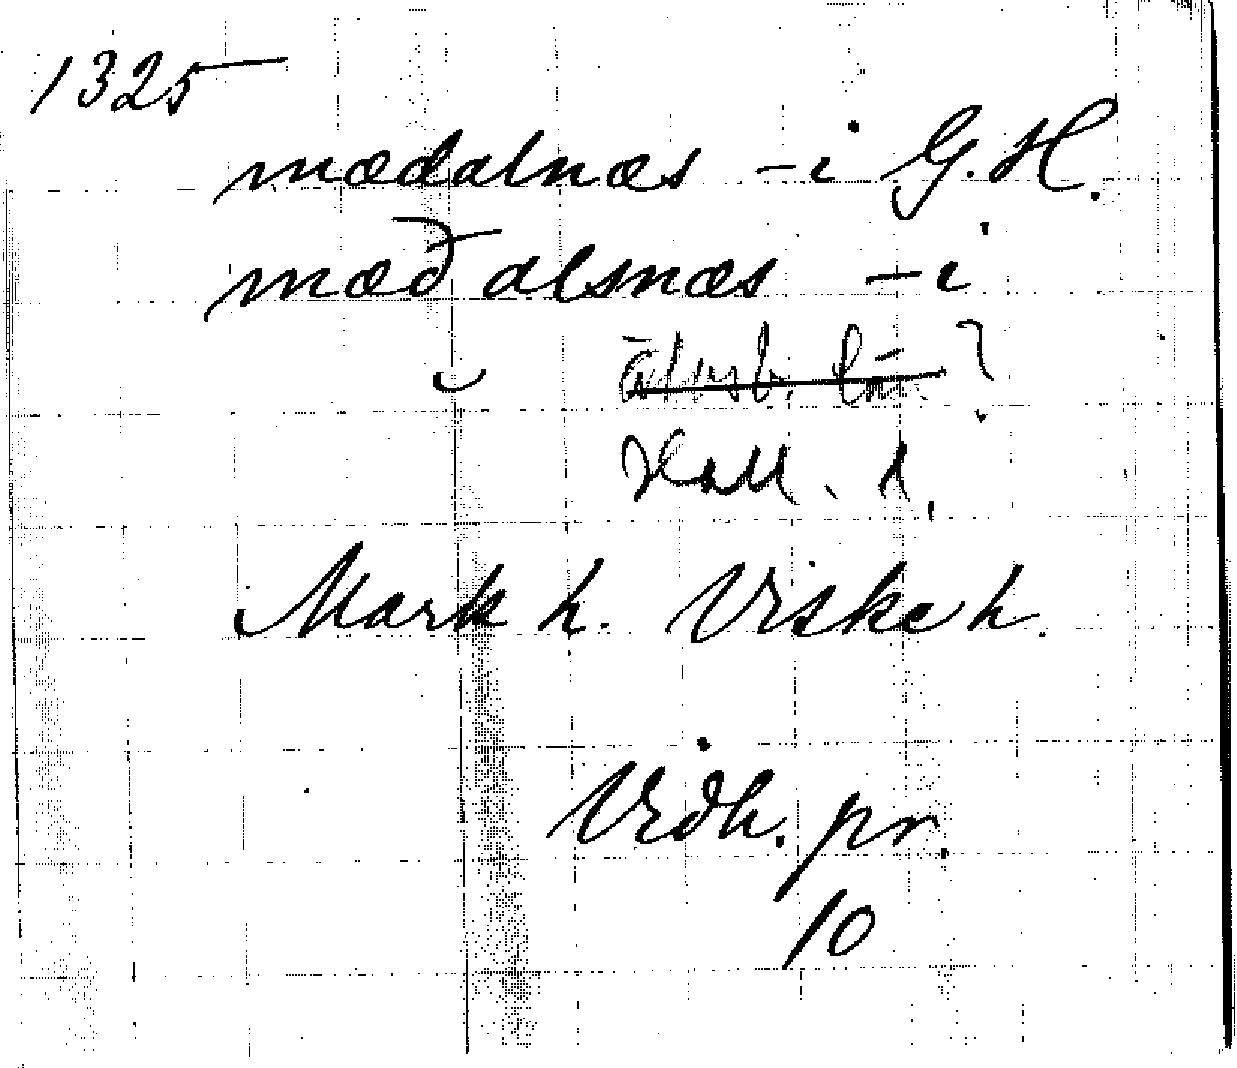 1325
mædalnæs - i G.H.
mæðalsnæs - i
älvsb. län ?
Hall. l.
Mark h. Viske h.
Vidh. pr.
10